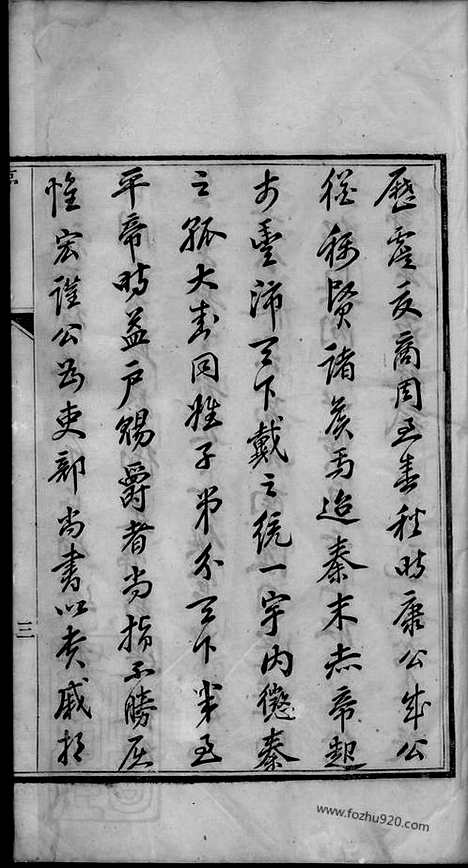 歷虞夏商周至春秋時康公成公
從稱賢諸侯焉迨秦末赤帝起
於豐沛天下戴之統一宇內懲秦
之孤大封同姓子弟分天下半至
平帝時益戶賜爵者尚指不勝屈
惟宏謹公為吏部尚書以貴戚
三
www.fozhu920.com